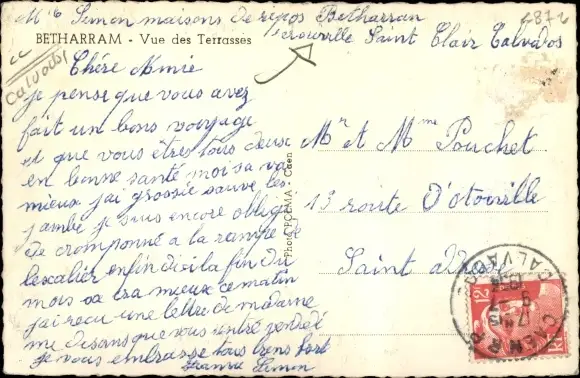 Mlle Simon maisons de repos Betharran
Hérouville Saint Clair Calvados
BETHARRAM - Vue des Terrasses
Calvados
Chére Mmie
je pense que vous avez
fait un bons voryage
et que vous êtres tous deux
en bonne santé moi sa va
mieux j'ai grossie sauve les
jambe je suis encore obligé
de cromponné a la rampe de
l'escalier enfin d'isi la fin du
mois sa ira mieux ce matin
j'ai reçu une lettre de madame
me disans que vous entré vendredi
je vous embrasse tous biens fort
Simon
Photo POEMA - Caen
Mr et Mme Pouchet
13 route D'otonville
Saint
CAEN R.P.
CALVADOS